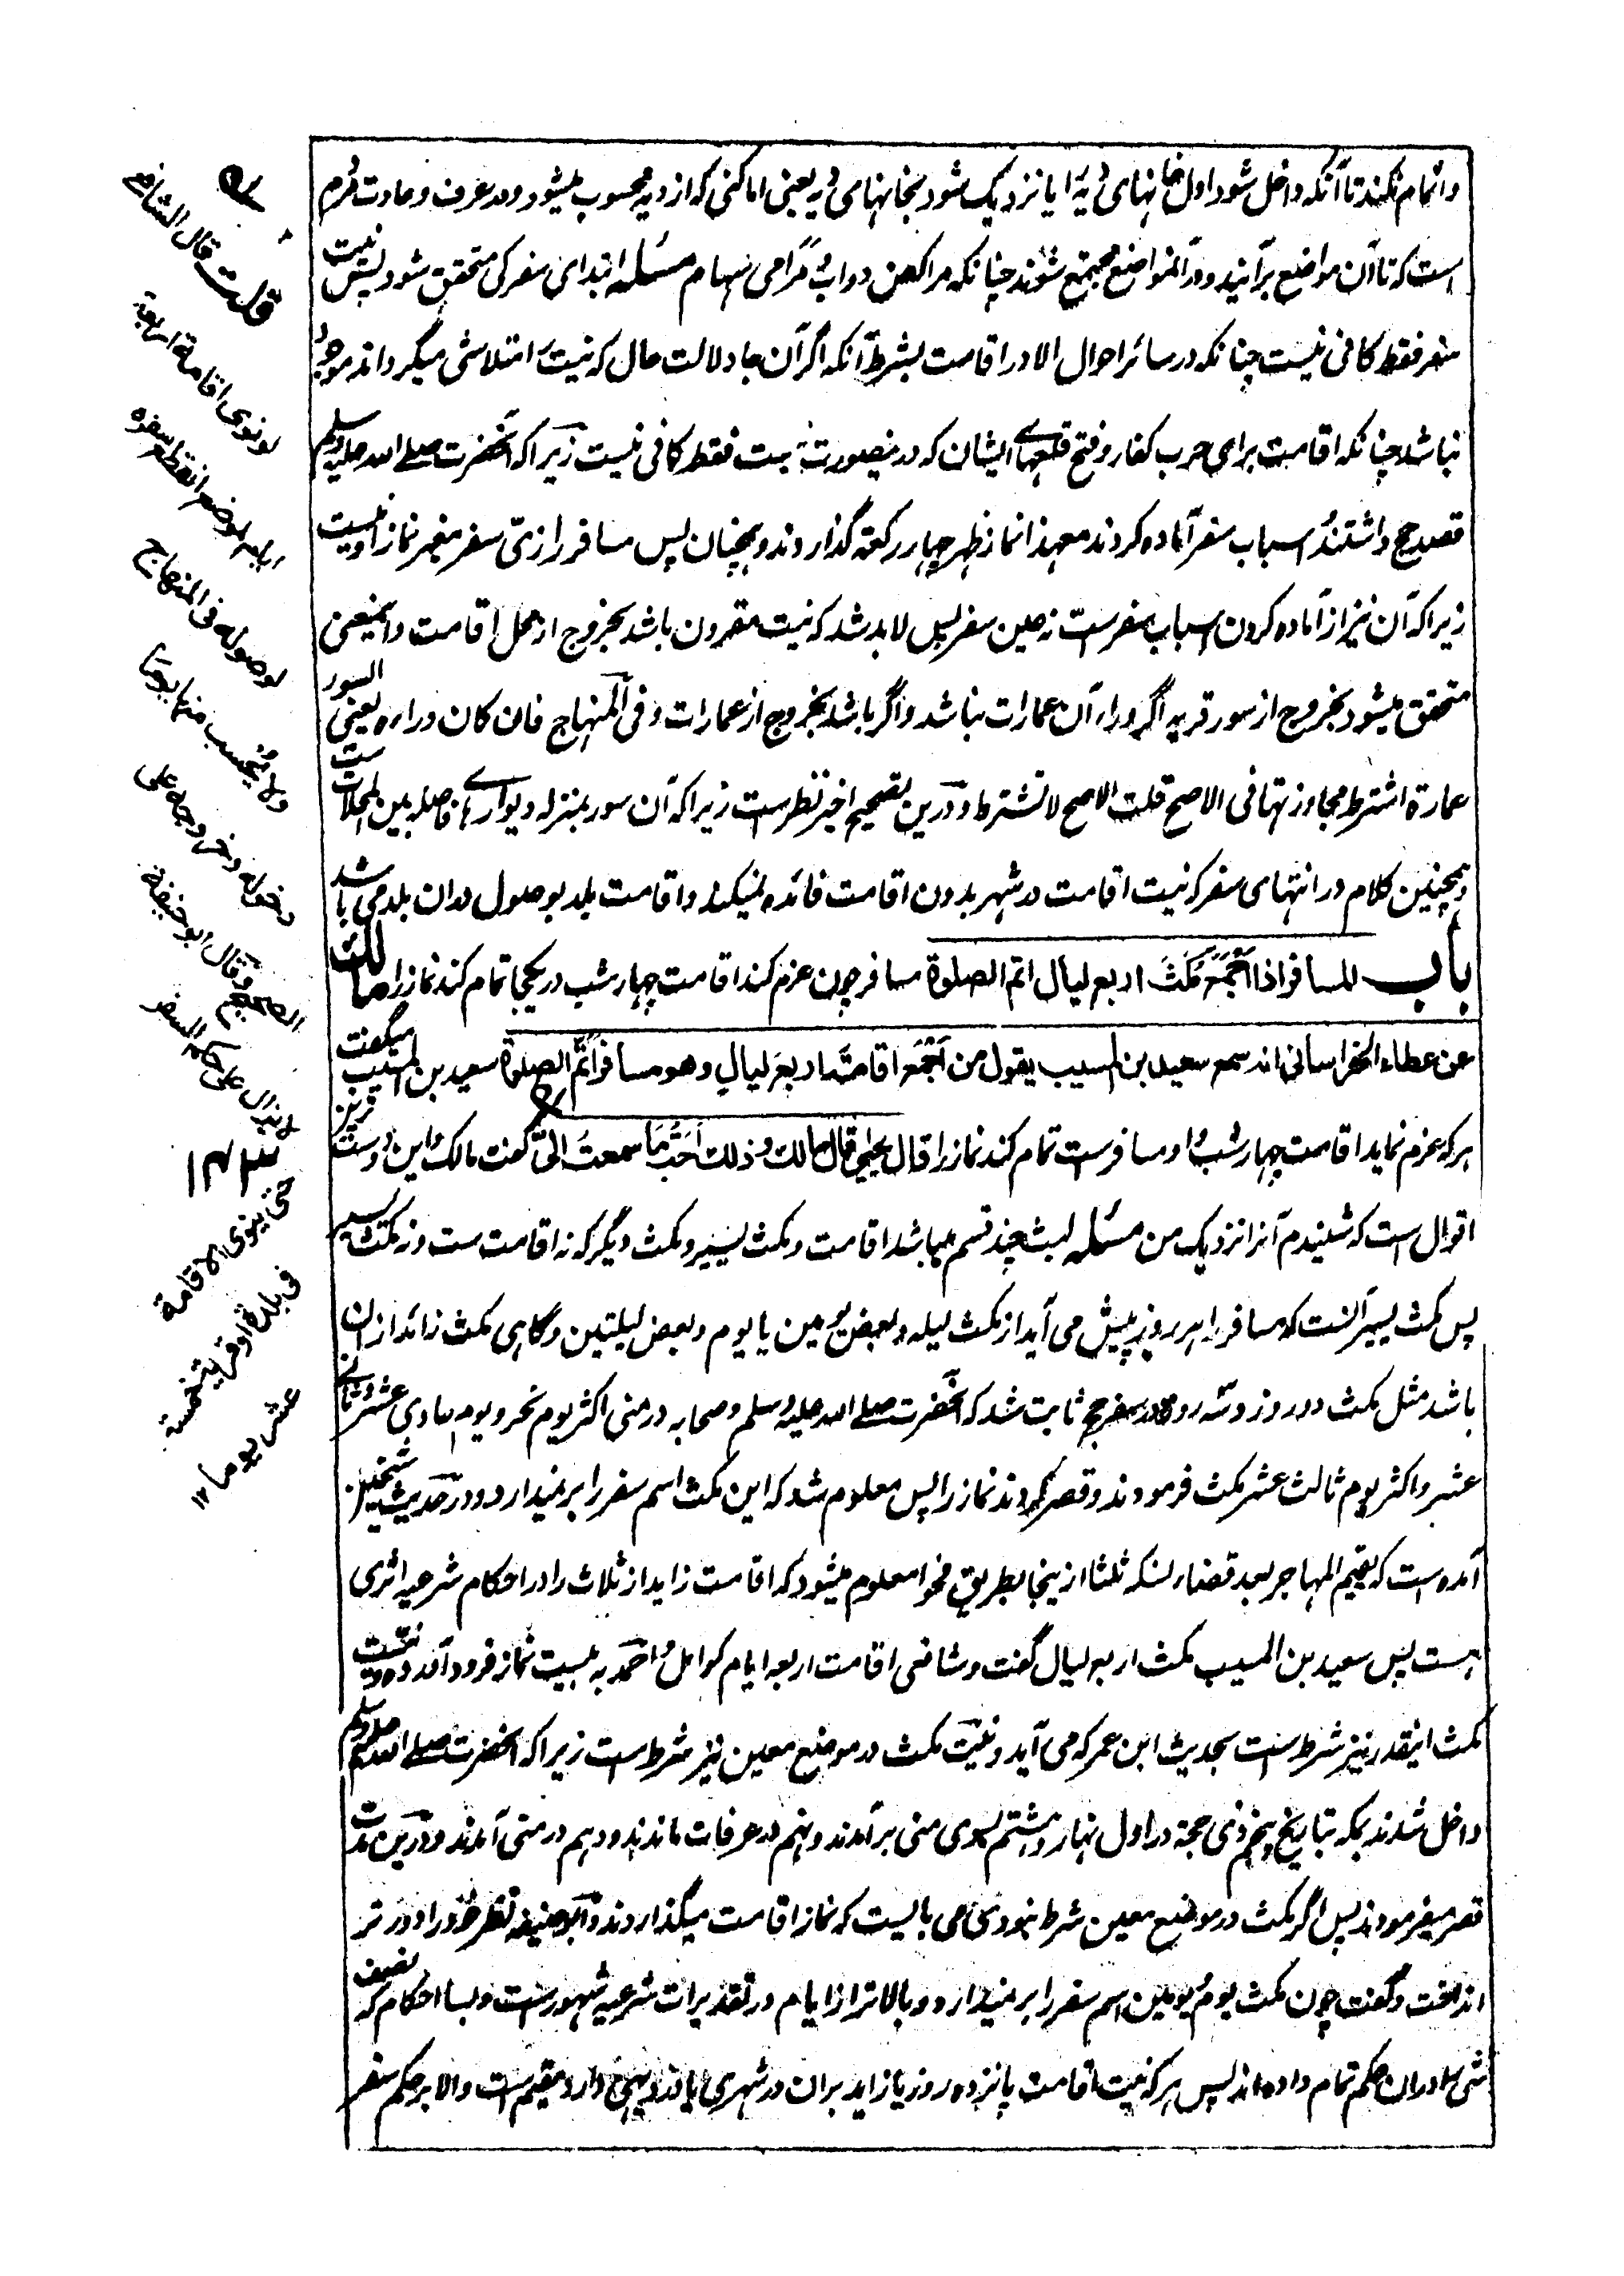 واتمام نکند تا آنکه داخل شود اول خانهای دیه را یا نزدیک شود بخانهای دیه یعنی اماکنی که از دیه محسوب میشود و در عرف و عادت مردم
است که تا آن مواضع برآیند و در آنمواضع مجتمع شوند چنانکه مراکض دواب و مرامی سهام مسئله ابتدای سفر کی متحقق شود پس نیت
سفر فقط کافی نیست چنانکه در سائر احوال الا در اقامت بشرط آنکه اگر آن جا دلالت حال که نیت را متلاشی میگرداند موجود
نباشد چنانکه اقامت برای حرب کفار و فتح قلعهای ایشان که درینصورت نیت فقط کافی نیست زیرا که آنحضرت صلی الله علیه وسلم
قصد حج داشتند و اسباب سفر آماده کردند معهذا نماز ظهر چهار رکعت گذاردند و همچنان پس مسافر را زی سفر مغیر نماز او نیست
زیرا که آن نیز از آماده کردن اسباب سفرست نه عین سفر پس لابد شد که نیت مقرون باشد بخروج از محل اقامت و اینمعنی
متحقق میشود بخروج از سور قریه اگر وراء آن عمارات نباشد و اگر باشد بخروج از عمارات و فی المنهاج فان کان وراءه یعنی السور
عمارة اشترط مجاوزتها فی الاصح قلت الاصح لا تشترط و درین تصحیح اخیر نظرست زیرا که آن سور بمنزله دیوارهای فاصله بین المحلات ست
و همچنین کلام در انتهای سفر که نیت اقامت در شهر بدون اقامت فائده نمیکند و اقامت بلد بوصول دران بلد می باشد
باب المسافر اذا اجمع مکث اربع لیال اتم الصلوة مسافر چون عزم کند اقامت چهار شب در یکجا تمام کند نماز را مالك
عن عطاء الخراسانی انه سمع سعید بن المسیب یقول من اجمع اقامة اربع لیال وهو مسافر اتم الصلوة سعید بن المسیب میگفت
هر که عزم نماید اقامت چهار شب و او مسافرست تمام کند نماز را قال یحیی قال مالك وذلك احب ما سمعت الیّ گفت مالک و این دوست ترین
اقوال ست که شنیدم آنرا نزدیک من مسئله لبث چند قسم میباشد اقامت و مکث یسیر و مکث دیگر که نه اقامت ست و نه مکث یسیر
پس مکث یسیر آنست که مسافر را هر روز پیش می آید از مکث لیله و بعض یومین یا یوم و بعض لیلتین و گاهی مکث زائد ازان
باشد مثل مکث دو روز و سه روز و در سفر حج ثابت شد که آنحضرت صلی الله علیه وسلم و صحابه در منی اکثر یوم نحر و یوم حادی عشر و ثانی
عشر و اکثر یوم ثالث عشر مکث فرمودند و قصر کردند نماز را پس معلوم شد که این مکث اسم سفر را برنمیدارد و در حدیث شیخین
آمده است که یقیم المهاجر بعد قضاء نسکه ثلثا ازینجا بطریق فحوا معلوم میشود که اقامت زاید از ثلاث را در احکام شرعیه اثری
هست پس سعید بن المسیب مکث اربع لیال گفت و شافعی اقامت اربعه ایام کوامل و احمد به بیست نماز فرود آمد و نیت
مکث اینقدر نیز شرط ست بحدیث ابن عمر که می آید و نیت مکث در موضع معین نیز شرط ست زیرا که آنحضرت صلی الله علیه وسلم
داخل شدند بمکه بتاریخ پنجم ذی حجة در اول نهار و هشتم بسوی منی برآمدند و نهم در عرفات ماندند و دهم در منی آمدند و درین مدت
قصر میفرمودند پس اگر مکث در موضع معین شرط نبودی می بایست که نماز اقامت میگذاردند و ابو حنیفه نظر خود را دورتر
انداخت و گفت چون مکث یوم و یومین اسم سفر را برنمیدارد و بالاتر از ایام در تقدیرات شرعیه شهورست و بسا احکام که نصف
شی را دران حکم تمام داده اند پس هر که نیت اقامت پانزده روز یا زاید بران در شهری یا در دیهی دارد مقیم ست والا بر حکم سفر
قلت قال الشافعی
لو نوی اقامة اربعة
ایام بموضع انقطع سفره
بوصوله فی المنهاج
ولا یحسب منها یوما
دخوله وخروجه علی
الصحیح وقال ابو حنیفة
لا یزال علی حکم السفر
حتی ینوی الاقامة
فی بلدة او قریة خمسة
عشر یوما ۱۲